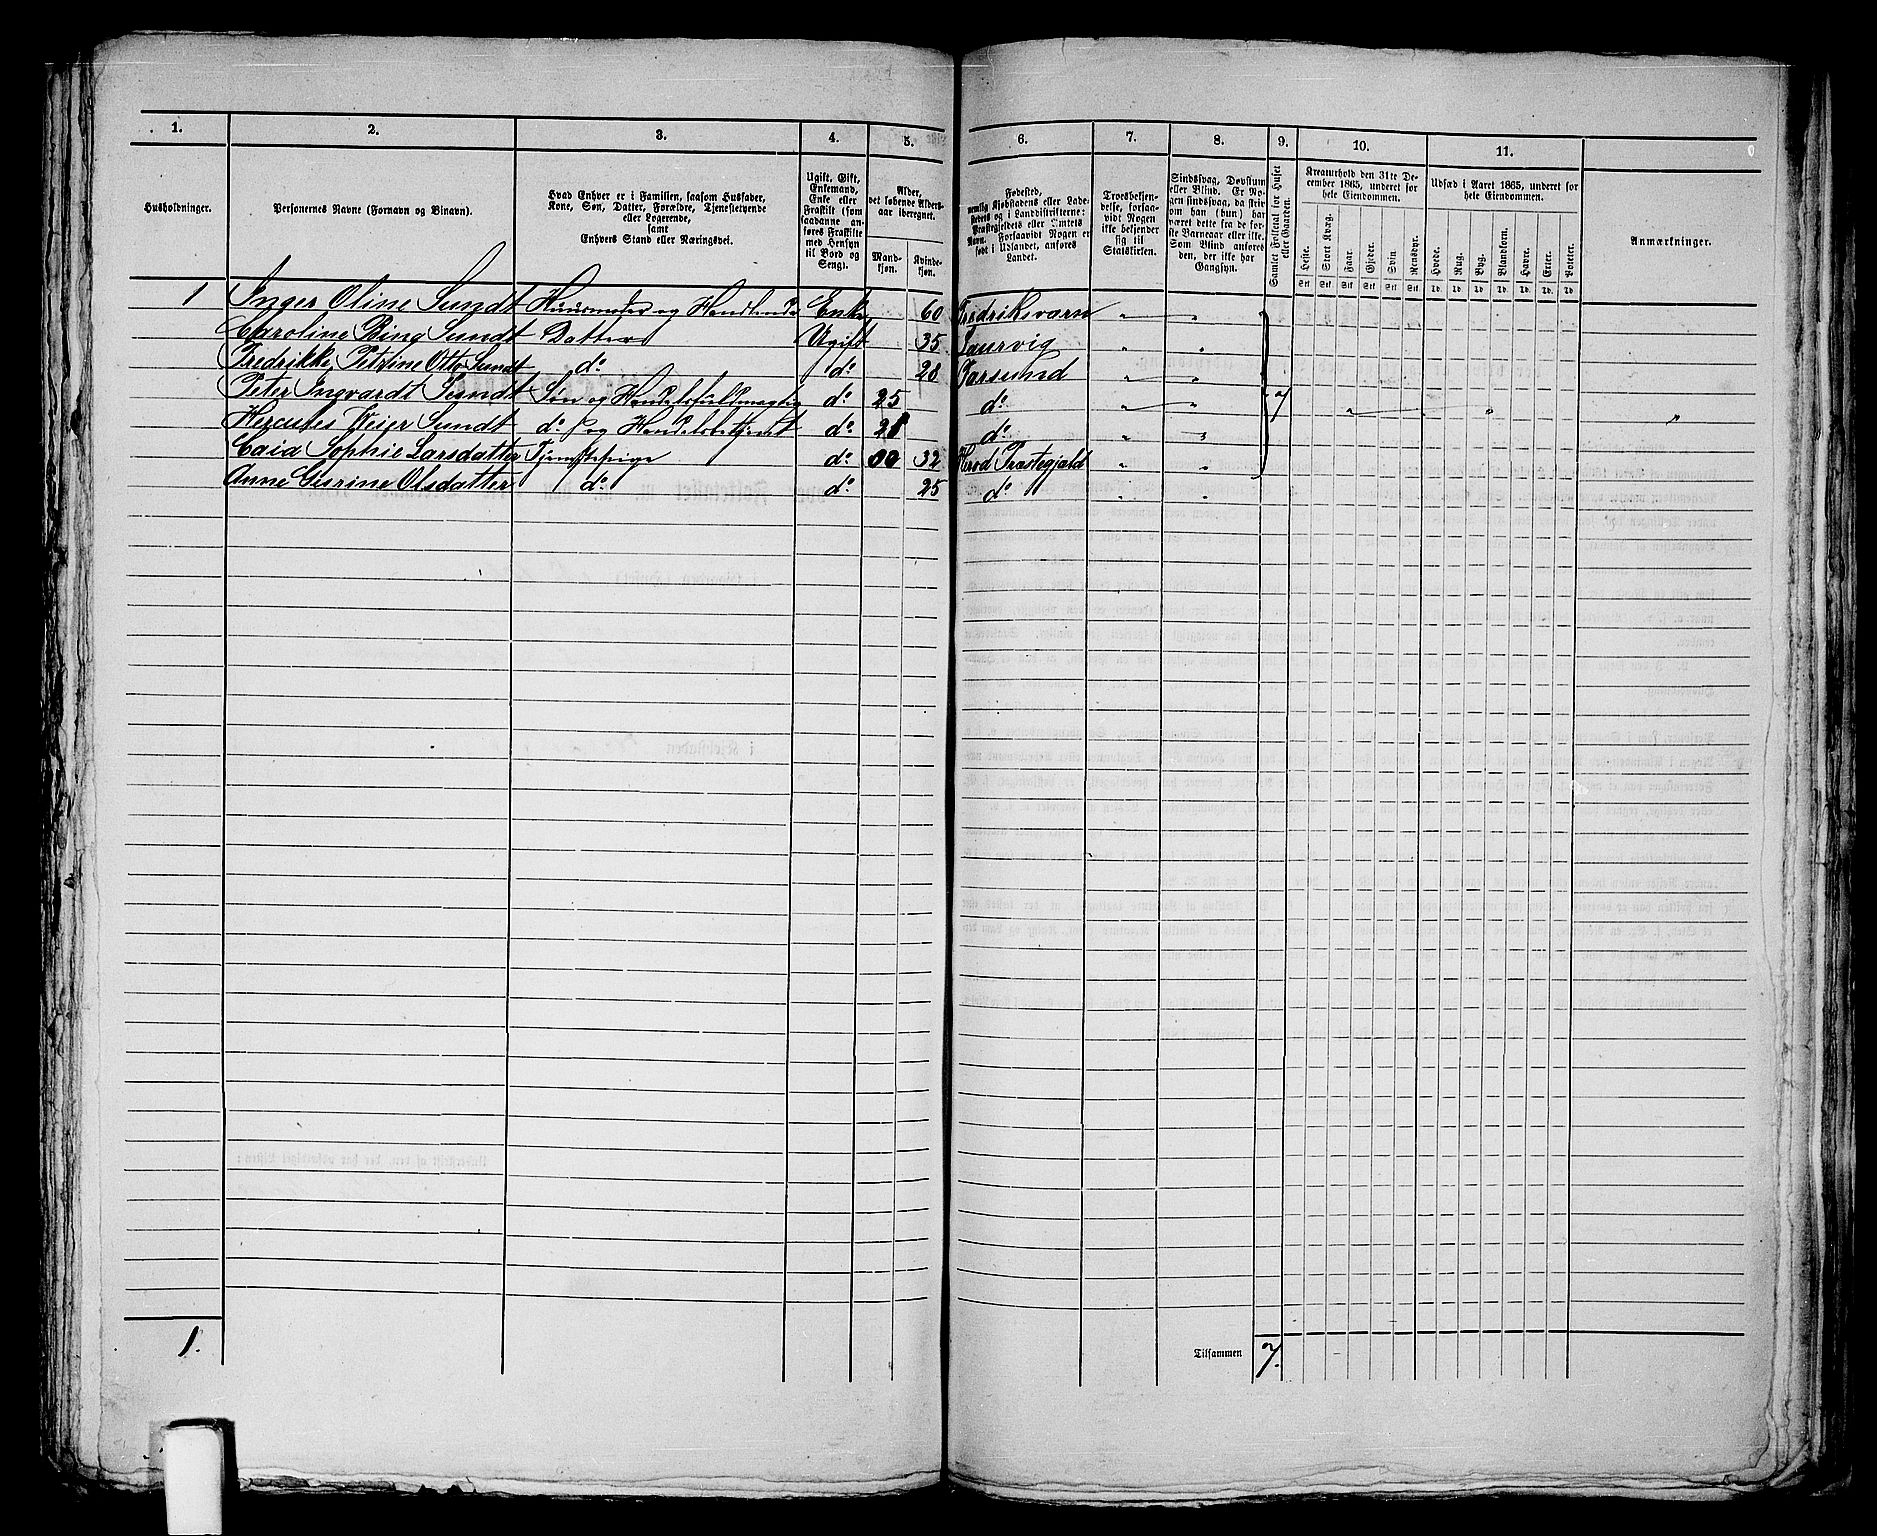 1. 2. 3. 4. 5. 6. 7. 8. 9. 10. 11.
Husholdninger.
Personernes Navne (Fornavn og Binavn).
Hvad Enhver er i Familien, saasom Husfader,
Kone, Søn, Datter, Forældre, Tjenestetyende
eller Logerende,
samt
Enhvers Stand eller Næringsvei.
Ugift, Gift,
Enkemand,
Enke eller
Fraskilt (som
saadanne an-
føres Fraskilte
med Hensyn
til Bord og
Seng).
Alder,
det løbende Alders-
aar iberegnet.
Mand-
kjøn.
Kvinde-
kjøn.
Fødested,
nemlig Kjøbstadens eller Lade-
stedets og i Landdistrikterne:
Præstegjeldets eller Amtets
Navn. Forsaavidt Nogen er
født i Udlandet, anføres
Landet.
Troesbekjen-
delse, forsaa-
vidt Nogen
ikke bekjender
sig til
Statskirken.
Sindssvag, Døvstum
eller Blind. Er No-
gen sindssvag, da skri-
ves om han (hun) har
været dette fra de før-
ste Barneaar eller ikke.
Som Blind anføres
den, der ikke har
Gangsyn.
Samlet Folketal for Huset
eller Gaarden.
Kreaturhold den 31te De-
cember 1865, underet for
hele Eiendommen.
Heste. Stort Kvæg. Faar. Gjeder. Svin. Rensdyr.
Stk Stk Stk Stk Stk Stk
Udsæd i Aaret 1865, underet for
hele Eiendommen.
Hvede. Rug. Byg. Blandkorn. Havre. Erter. Poteter.
Td. Td. Td. Td. Td. Td. Td.
Anmærkninger.
1 Inger Oline Sundt Huusmoder og Handlende Enke 60 Fredriksværn " "
Caroline Bing Sundt Datter Ugift 35 Laurvig " "
Fredrikke Petrine Otto Sundt do do 28 Farsund " "
Peter Ingvardt Sundt Søn og Handelsfuldmægtig do 25 do " " 7 " " "
Hercules Weier Sundt do og Handelsbetjent do 21 do " "
Caia Sophie Larsdatter Tjenestepige do 32 Herod Præstegjæld " "
Anne Gisrine Olsdatter do do 25 do " "
1. Tilsammen 7.